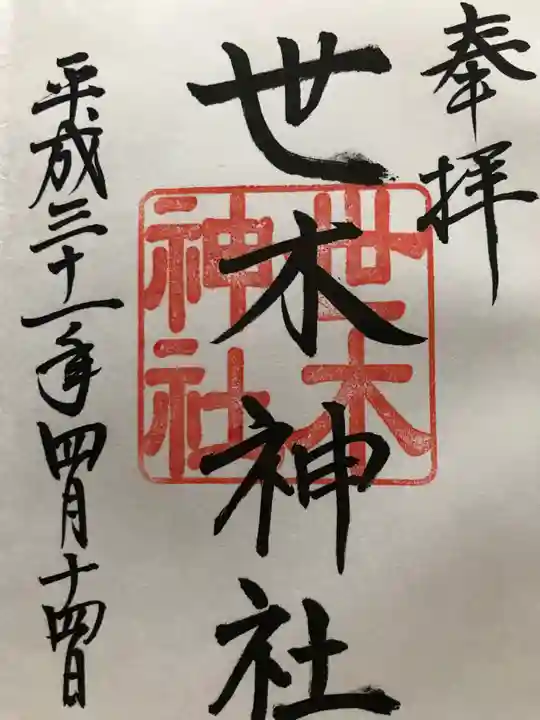 奉拝
世木神社
世木
神社
平成三十一年四月十四日